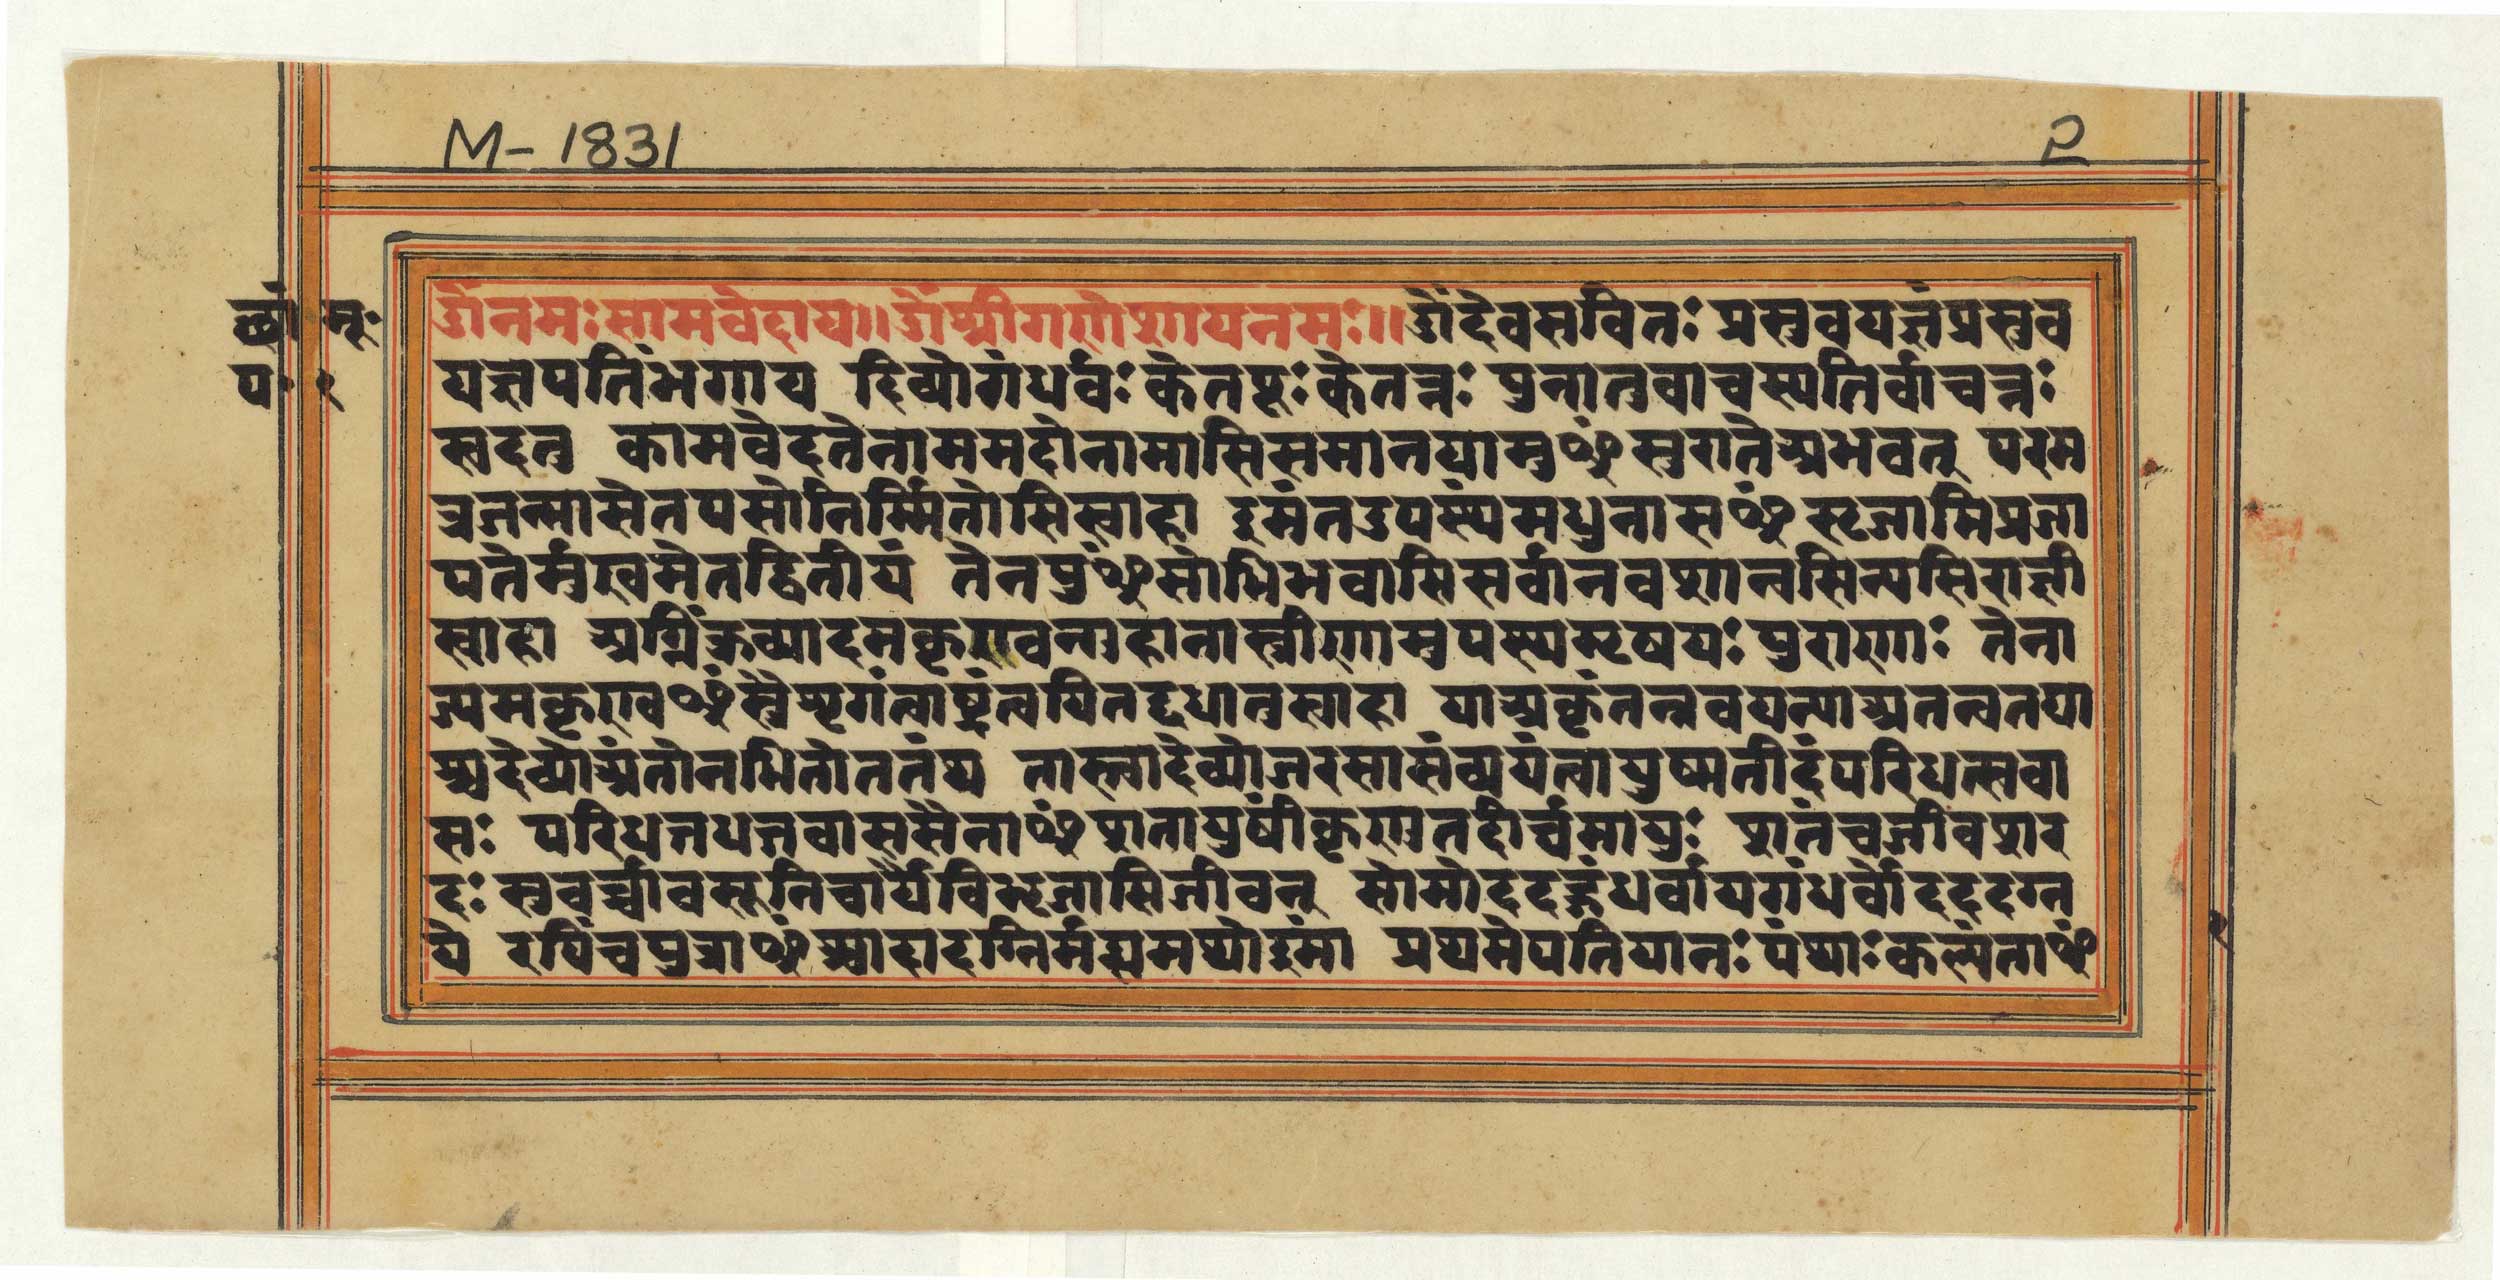 M-1831
२
छां॰ मं॰
प॰ १
ॐनमःसामवेदाय॥ॐश्रीगणेशायनमः॥ॐदेवसवितः प्रसुवयज्ञंप्रसुव
यज्ञपतिंभगाय दिव्योगंधर्वः केतपूः केतन्नः पुनातुवाचस्पतिर्वाचन्नः
स्वदतु कामवेदतेनाममदोनामासिसमानयामुꣳसुरातेअभवत् परम
त्रजन्माग्नेतपसोनिर्म्मितोसिस्वाहा इमंतउपस्थंमधुनासꣳसृजामिप्रजा
पतेर्मुखमेतद्द्वितीयं तेनपुꣳसोभिभवासिसर्वानवशान्वसिन्यसिराज्ञी
स्वाहा अग्निंक्रव्यादमकृण्वन्गुहानास्त्रीणामुपस्थमृषयः पुराणाः तेना
ज्यमकृण्वꣳस्त्रैशृंगंत्वाष्ट्रंत्वयितद्दधातुस्वाहा याअकृंतन्नवयन्याअतन्वतया
श्चदेव्योअंतोनभितोततंथ तास्त्वादेव्योजरसासंव्ययंत्वायुष्मतीदंपरिधत्स्ववा
सः परिधत्तधत्तवाससैनाꣳशतायुषींकृणुतदीर्घमायुः शतंचजीवशर
दः सुवर्चावसूनिचार्येविभृजासिजीवन् सोमोददद्गंधर्वायगंधर्वोदददग्न
ये रयिंचपुत्राꣳश्चादादग्निर्मह्यमथोइमां प्रथमेपतियानः पंथाः कल्पंताꣳ
१